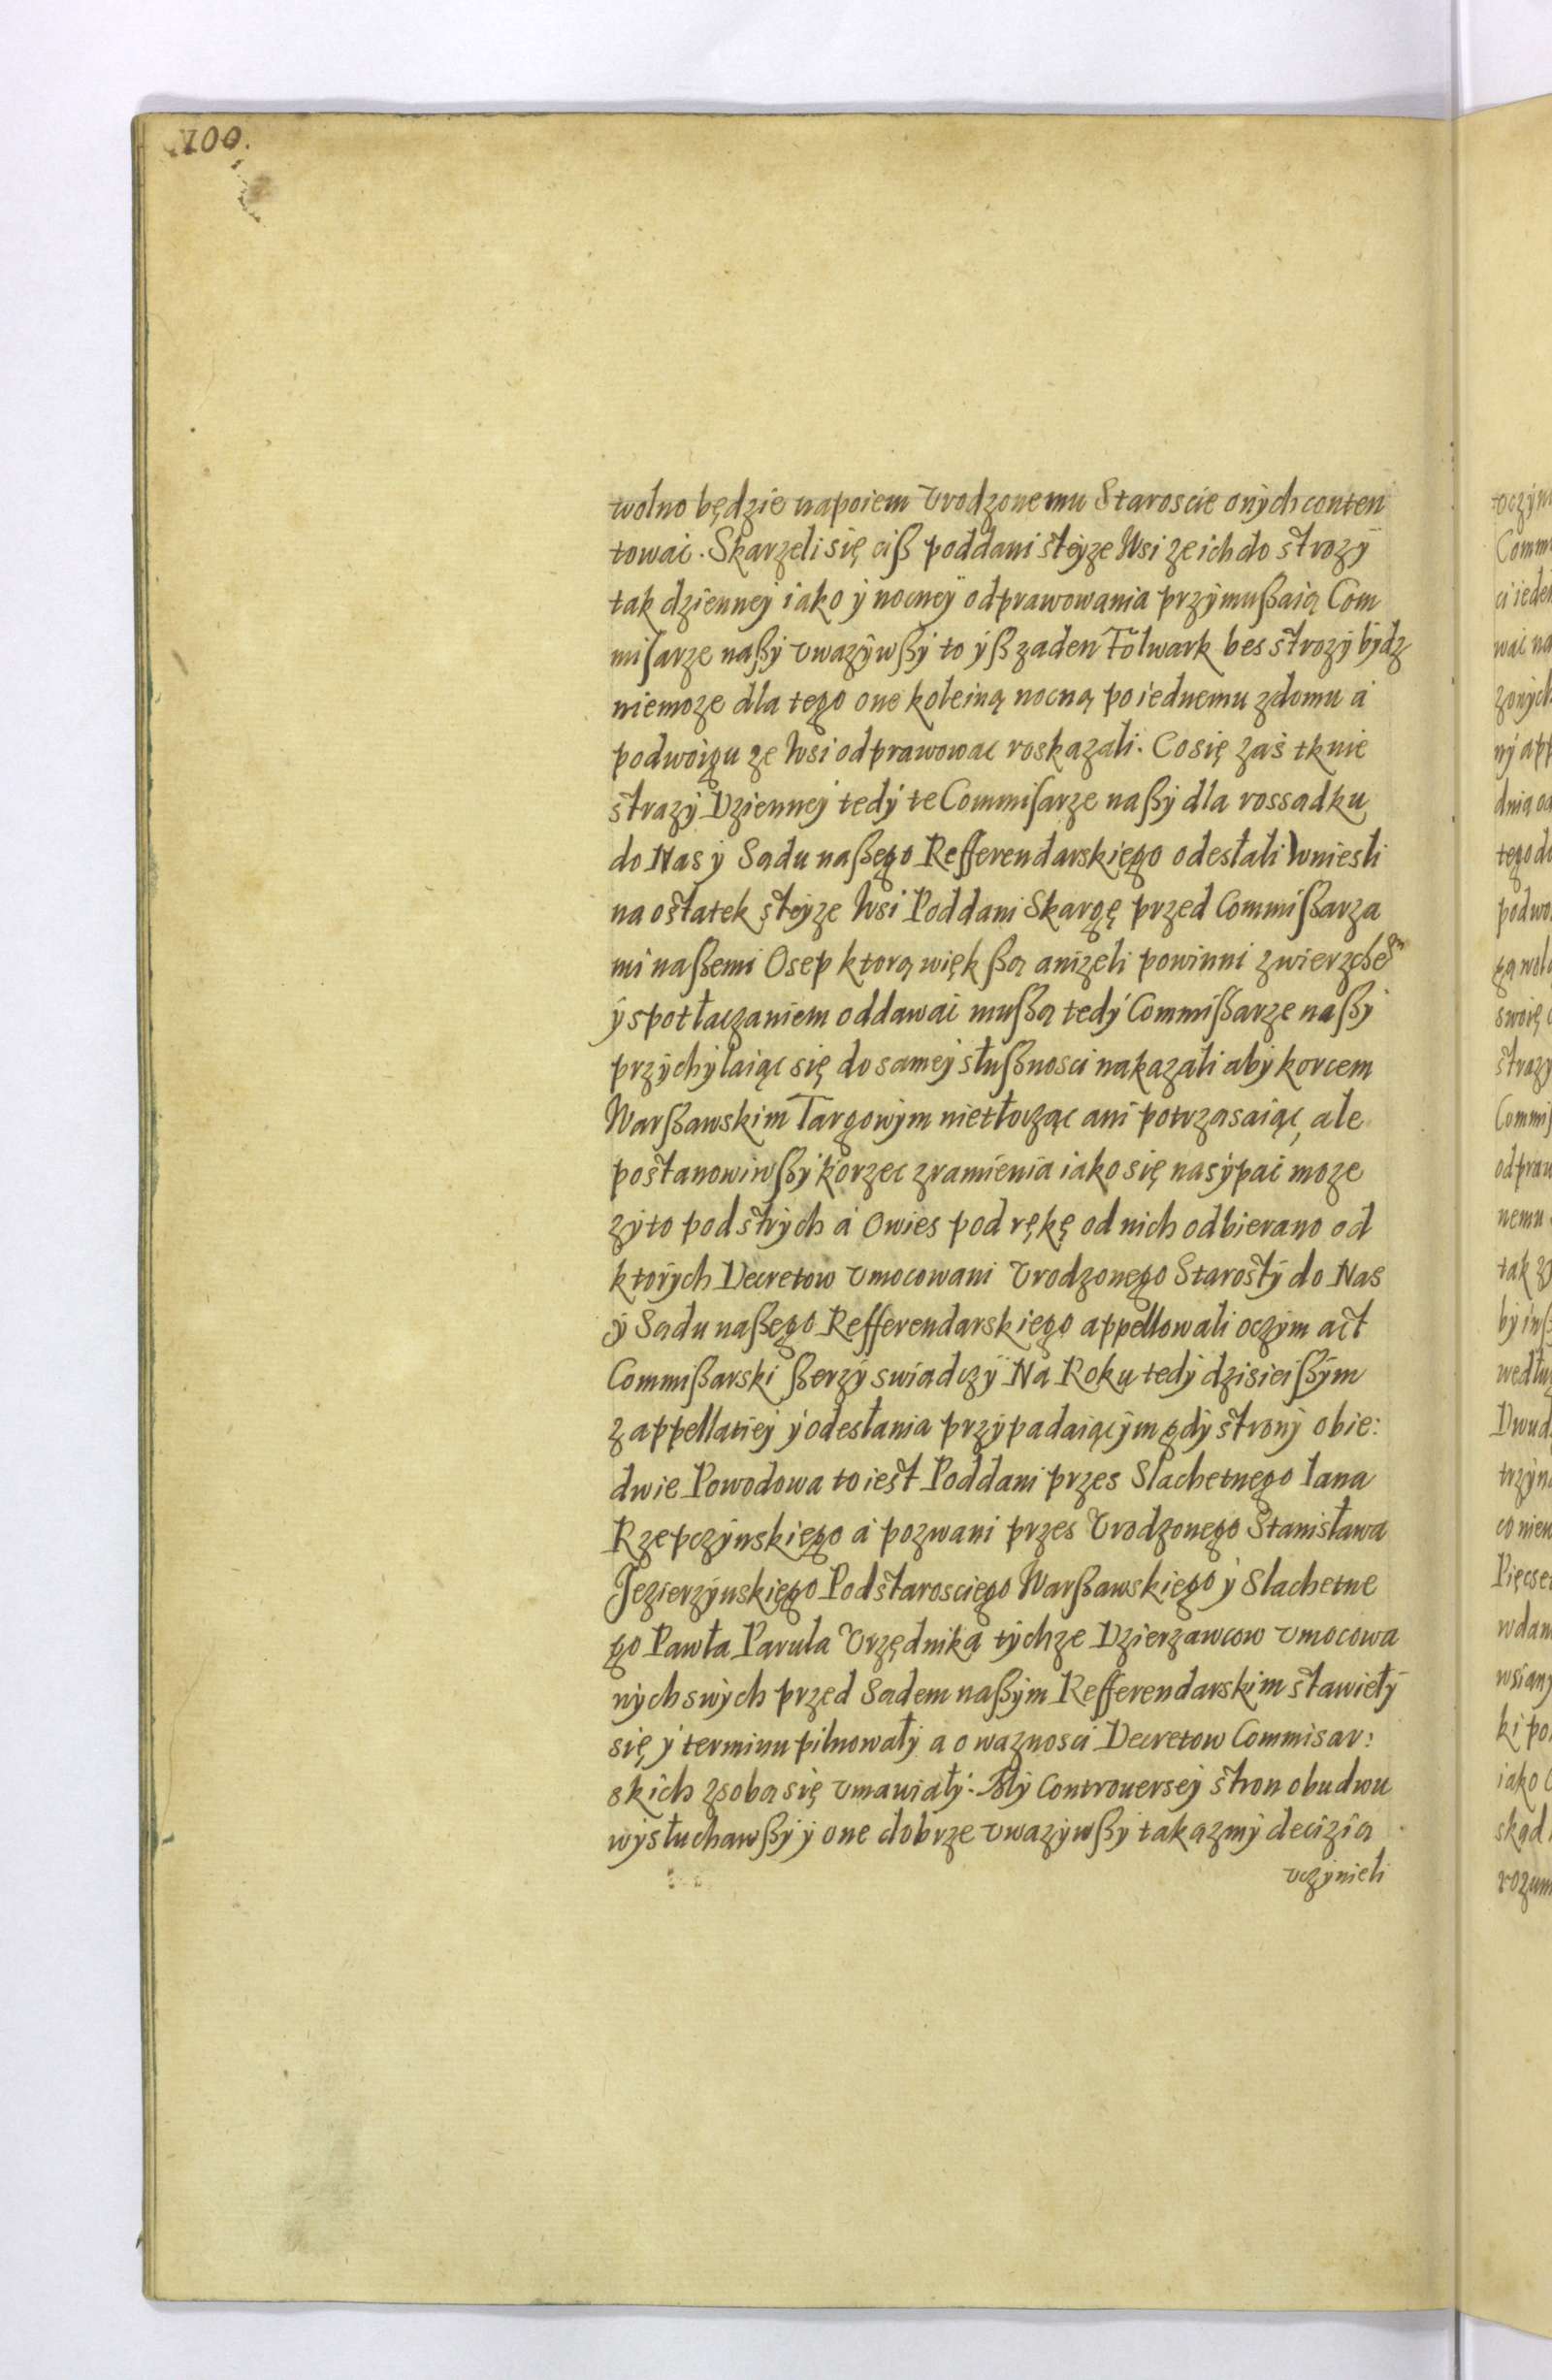 100.
wolno będzie napoiem Vrodzonemu Staroscie onÿch conten
towac. Skarzeli się ciß poddani steÿze Wsi ze ich do strozÿ
tak dziennej iako ÿ nocneÿ odprawowania przÿmußaią Com
misarze naßÿ vwazÿwßÿ to ÿß zaden Folwark bes strozÿ bÿdz
niemoze dla tego one koleiną nocną po iednemu zdomu a
podwoigu ze Wsi odprawowac roskazali. Co się zas tknie
strazÿ Dziennej tedÿ te Commisarze naßÿ dla rossadku
do Nas ÿ Sądu naßego Refferendarskiego odesłali Wniesli
na ostatek steÿze Wsi Poddani Skargę przed Commißarza
mi naßemi Osep ktorą więkßą anizeli powinni zwierzchem
ÿ spotłaczaniem oddawac mußą tedÿ Commißarze naßÿ
przÿchÿlaiąc się do samej słußnosci nakazali abÿ korcem
Warßawskim Targowÿm nietłocząc ani potrząsaiąc, ale
postanowiwßÿ korzec zramienia iako się nasÿpac moze
zÿto pod strÿch a Owies pod rękę od nich odbierano od
ktorÿch Decretow vmocowani Vrodzonego Starostÿ do Nas
ÿ Sądu naßego Refferendarskiego appellowali oczÿm act
Commißarski ßerzÿ swiadczÿ Na Roku tedÿ dzisieißÿm
z appellatiej ÿ odesłania przÿpadaiącÿm gdÿ stronÿ obie:
dwie Powodowa to iest Poddani przes Slachetnego Iana
Rzepczÿnskiego a pozwani przes Vrodzonego Stanisława
Jezierzÿnskiego Podstarosciego Warßawskiego ÿ Slachetne
go Pawła Parula Vrzędnika tÿchze Dzierzawcow vmocowa
nÿch swÿch przed Sądem naßÿm Refferendarskim stawiełÿ
się ÿ terminu pilnowałÿ a o waznosci Decretow Commisar:
skich zsobą się vmawiałÿ. Mÿ Controuersej stron obudwu
wÿsłuchawßÿ ÿ one dobrze vwazÿwßÿ taką zmÿ decizią
vczÿnieli